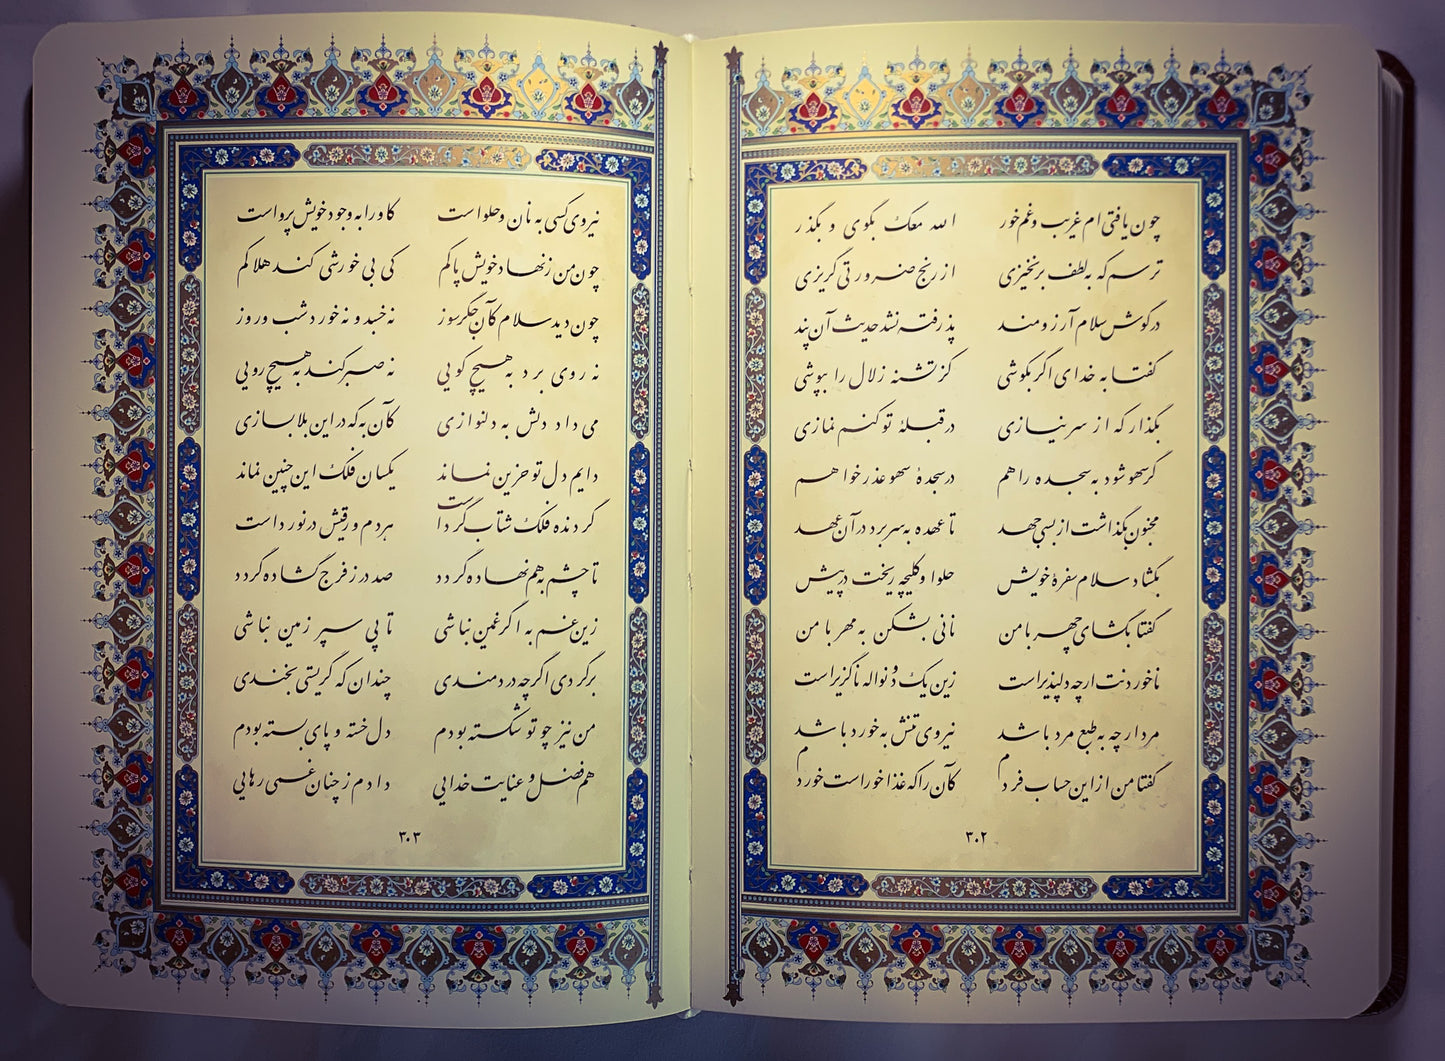 چون یافتی ام غریب و غم خور الله معک بگوی و بگذر
ترسم که به لطف برنخیزی از رنج ضرورتی گریزی
در گوش سلام آرزومند پذرفته نشد حدیث آن پند
گفتا به خدای اگر بکوشی کز تشنه زلال را بپوشی
بگذار که از سر نیازی در قبلهٔ تو کنم نمازی
گر سهو شود به سجده راهم در سجدهٔ سهو عذر خواهم
مجنون بگذاشت از بسی جهد تا عهده به سر برد در آن عهد
بگشاد سلام سفرهٔ خویش حلوا و کلیچه ریخت در پیش
گفتا بگشای چهر با من نانی بشکن به مهر با من
ناخوردنت ارچه دلپذیر است زین یک دو نواله ناگزیر است
مرد ارچه به طبع مرد باشد نیروی تنش به خورد باشد
گفتا من از این حساب فردم کآن را که غذا خور است خوردم
۳۰۲
نیروی کسی به نان و حلواست کاو را به وجود خویش پرواست
چون من ز نهاد خویش پاکم کی بی خورشی کند هلاکم
چون دید سلام کآن جگرسوز نه خسبد و نه خورد شب و روز
نه روی برد به هیچ کویی نه صبر کند به هیچ رویی
می داد دلش به دلنوازی کآن به که در این بلا بسازی
دایم دل تو حزین نماند یکسان فلک این چنین نماند
گردنده فلک شتاب گرد است هر دم ورقیش در نورد است
تا چشم به هم نهاده گردد صد در ز فرج گشاده گردد
زین غم به اگر غمین نباشی تا پی سپر زمین نباشی
برگردی اگرچه دردمندی چندان که گریستی بخندی
من نیز چو تو شکسته بودم دل خسته و پای بسته بودم
هم فضل و عنایت خدایی دادم ز چنان غمی رهایی
۳۰۳